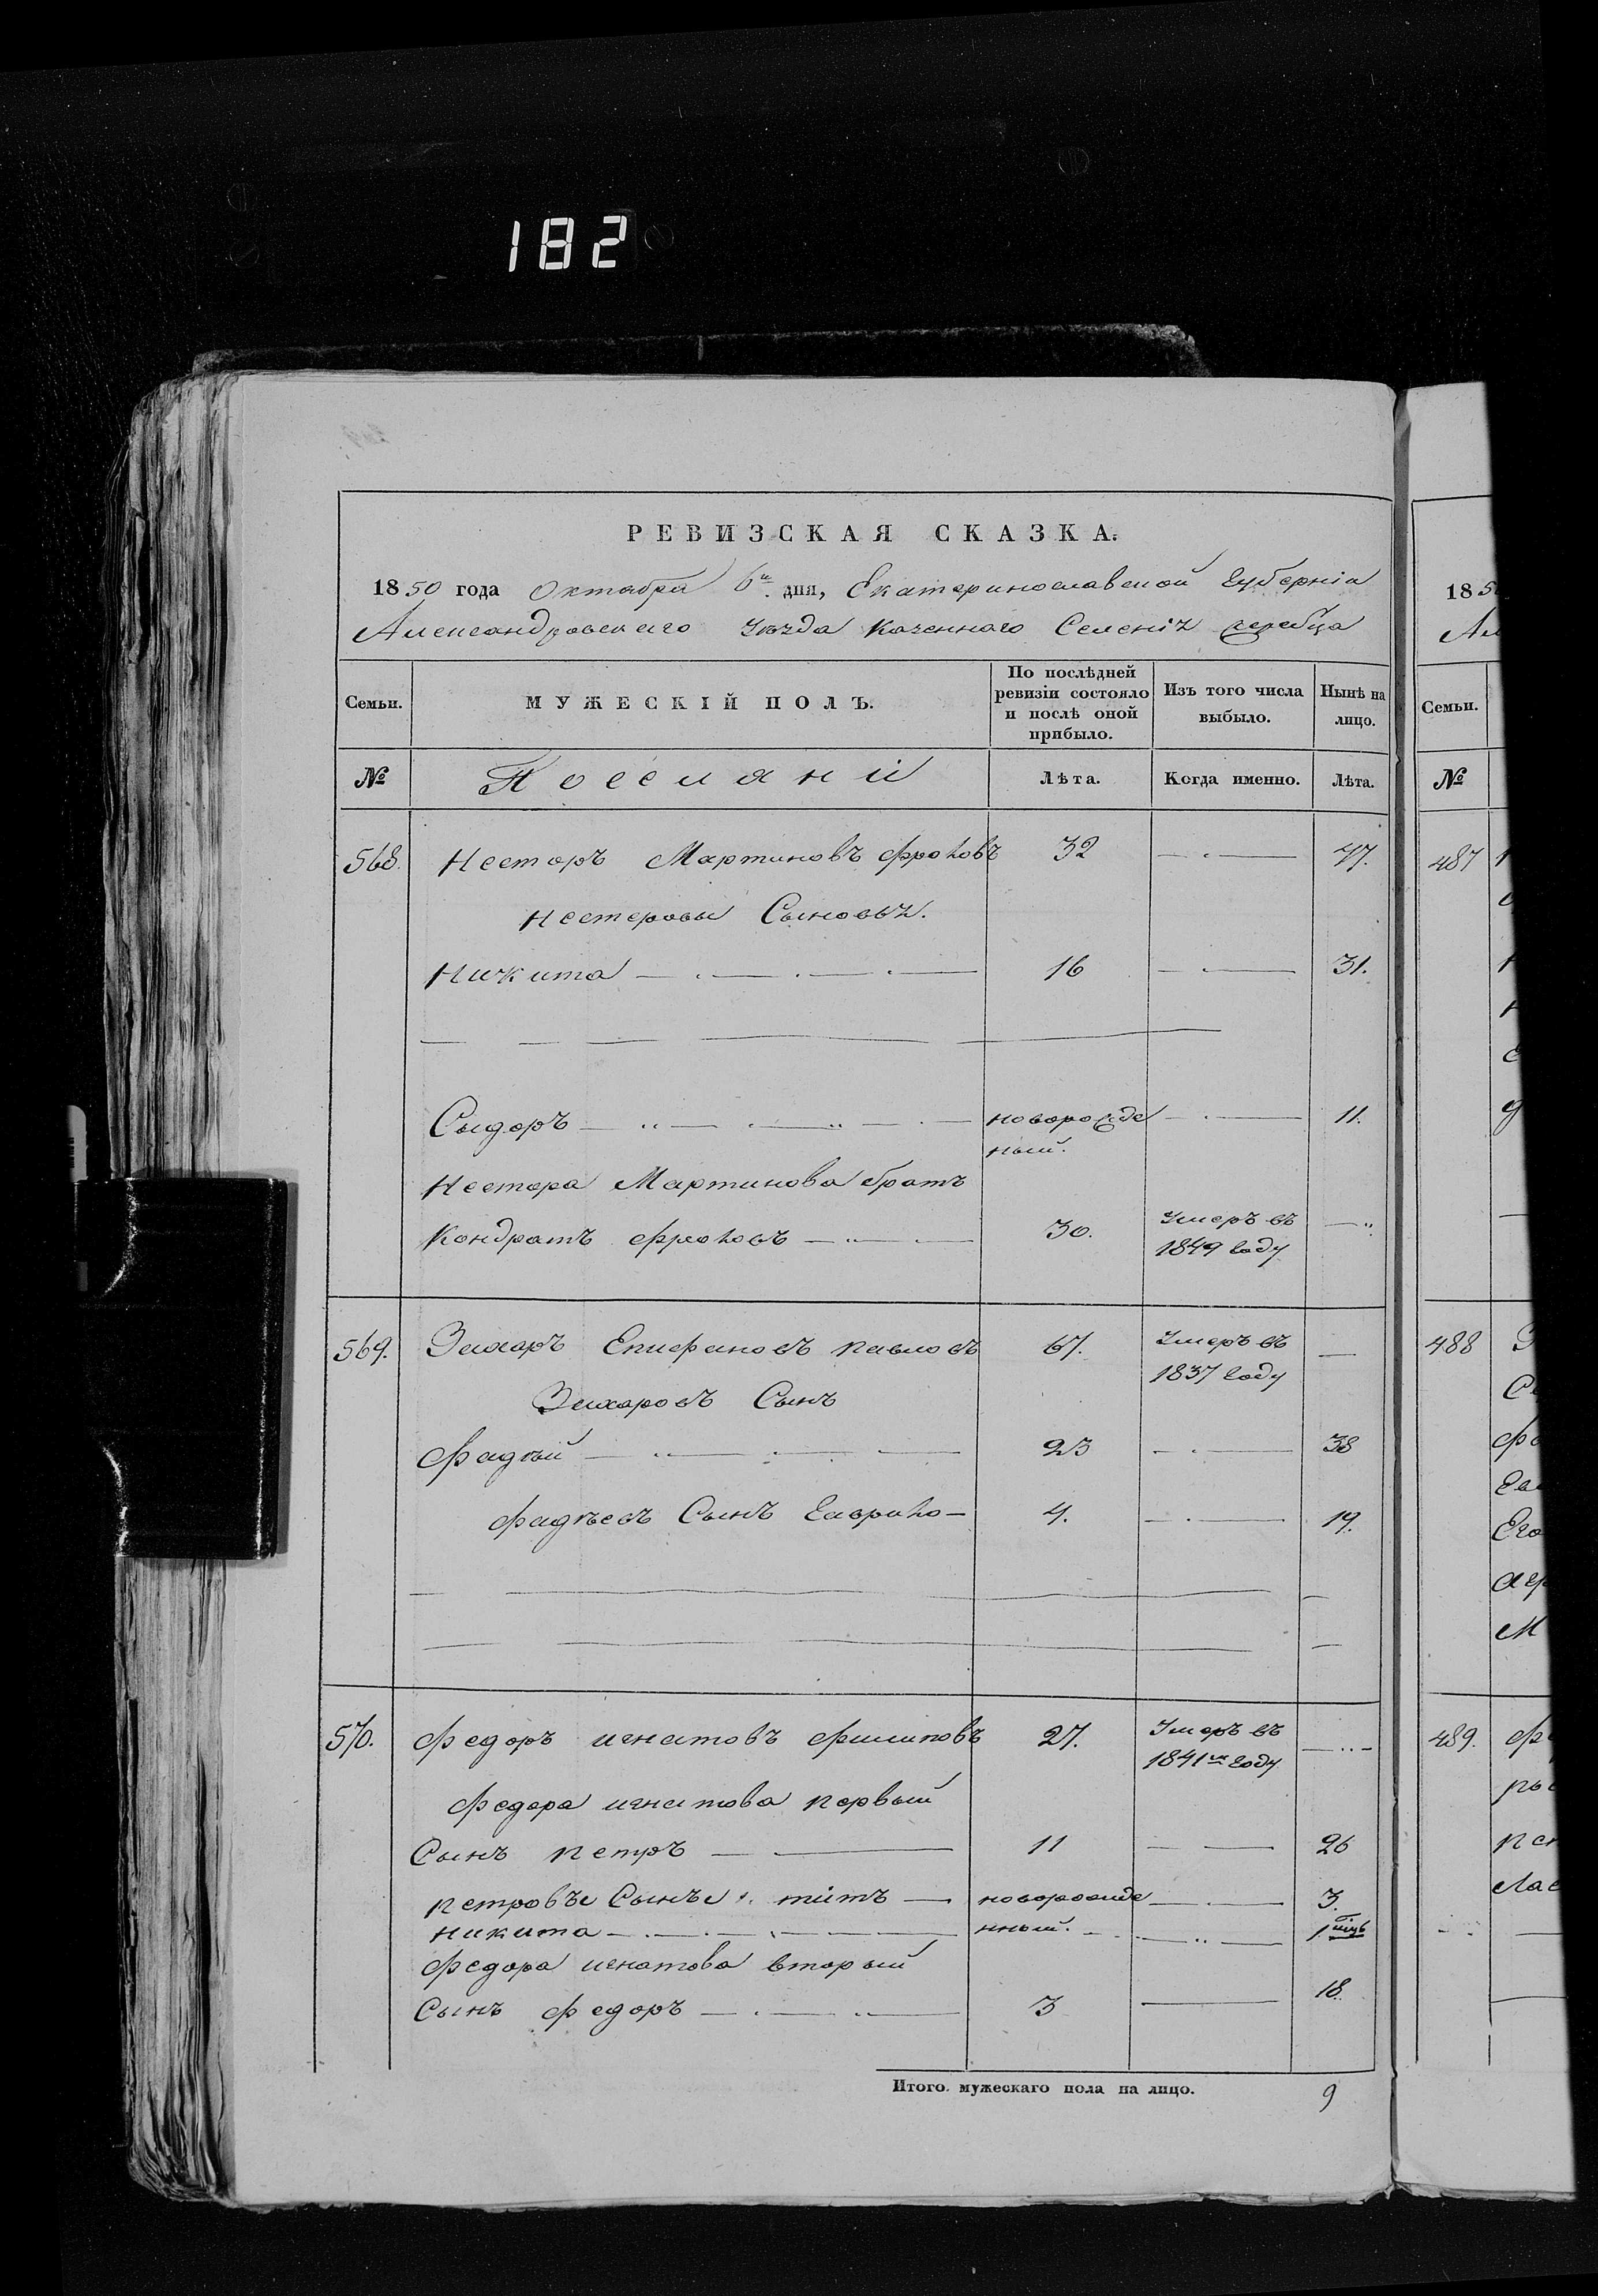 182
РЕВИЗСКАЯ СКАЗКА.
1850 года Октября 6го дня, Екатеринославской Губерніи
Александровскаго Уѣзда Казеннаго Селенія Жеребца
Семьи. МУЖЕСКІЙ ПОЛЪ. По послѣдней ревизіи состояло и послѣ оной прибыло. Изъ того числа выбыло. Нынѣ на лицо.
№ Лѣта. Когда именно. Лѣта.
568. Несторъ Мартиновъ 32 47.
Нестеровы Сыновья.
Никита 16 31.
Сыдоръ новорожде 11.
ный.
Нестора Мартинова братъ
Кондратъ 30. Умеръ въ
1849 году
569. Захаръ Епифановъ Павловъ 67. Умеръ въ
1837 году
Захаровъ Сынъ
Фадѣй 23 38
Фадѣевъ Сынъ Гаврило 4. 19.
570. Федоръ Игнатовъ Филиповъ 27. Умеръ въ
1841м году
Федора Игнатова первый
Сынъ Петръ 11 26
Петровы Сынъя 1. Титъ новорожде 3.
Никита нный. 1
Федора Игнатова вторый
Сынъ Федоръ 3 18.
Итого мужескаго пола на лицо. 9
185
Ал
Семьи.
№
487
488
489.